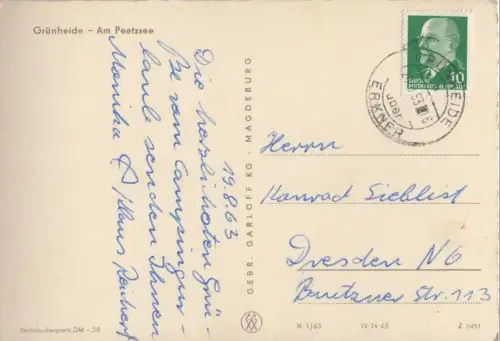 Grünheide – Am Peetzsee
19.8.63
Die herzlichsten Grü-
ße vom Campingur-
laub senden Ihnen
Monika & Klaus
GEBR. GARLOFF KG · MAGDEBURG
10
ERKNER
über
Herrn
Konrad Sieblist
Dresden N6
Bautzner Str. 113
Verbraucherpreis DM –,20
N 1/63
IV-14-45
Z